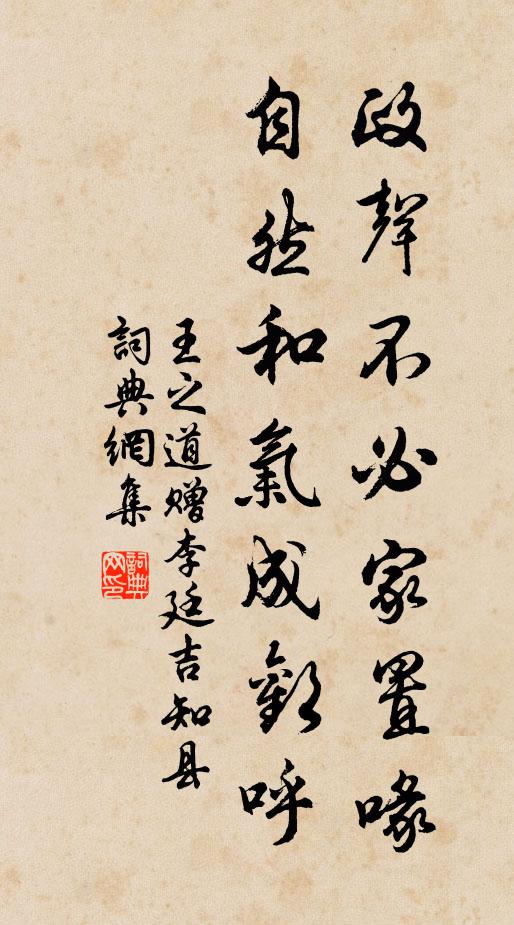 政聲不必家置喙
自然和氣成歡呼
王之道赠李廷吉知县
詞典網集
詞典網印